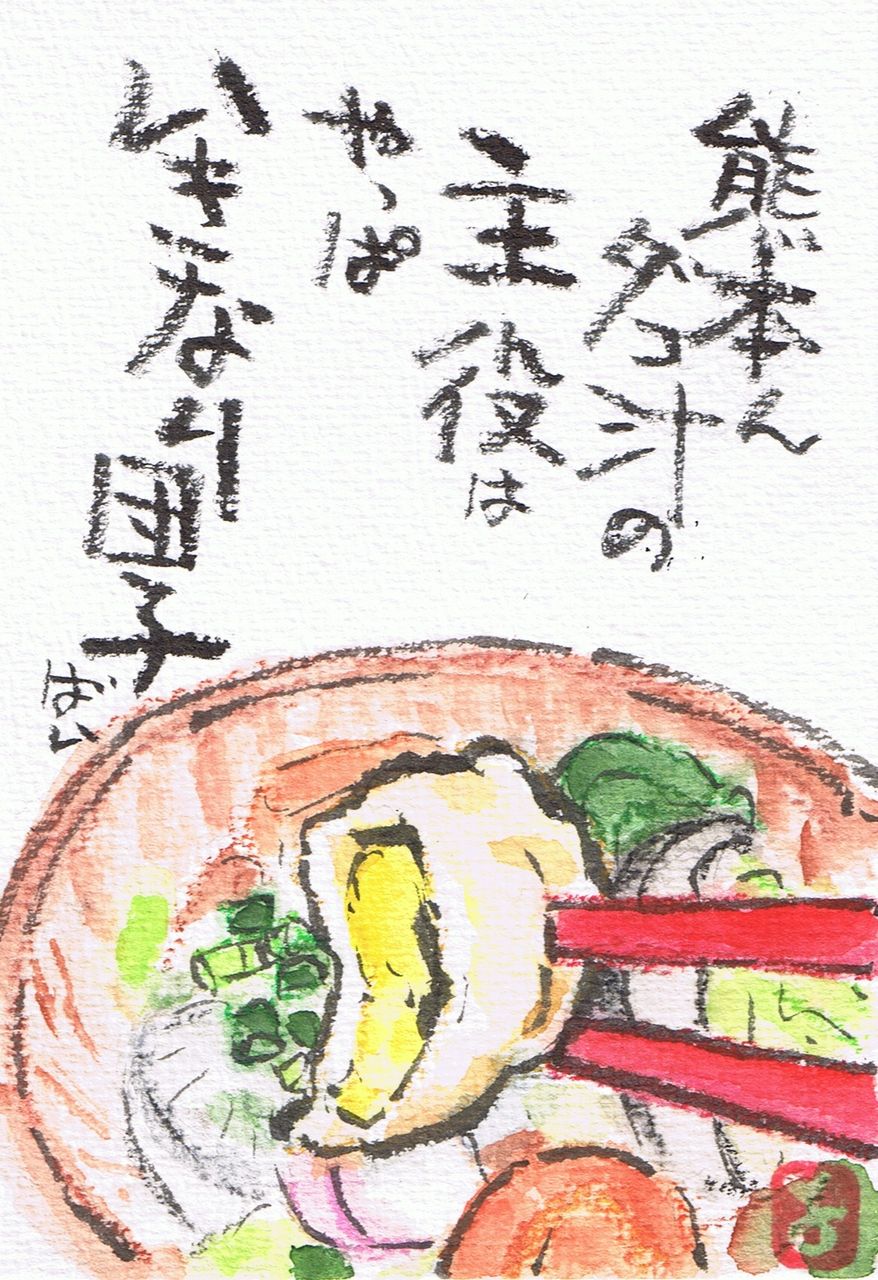 熊本ん
ダゴ汁の
主役は
やっぱ
いきなり団子
ばい